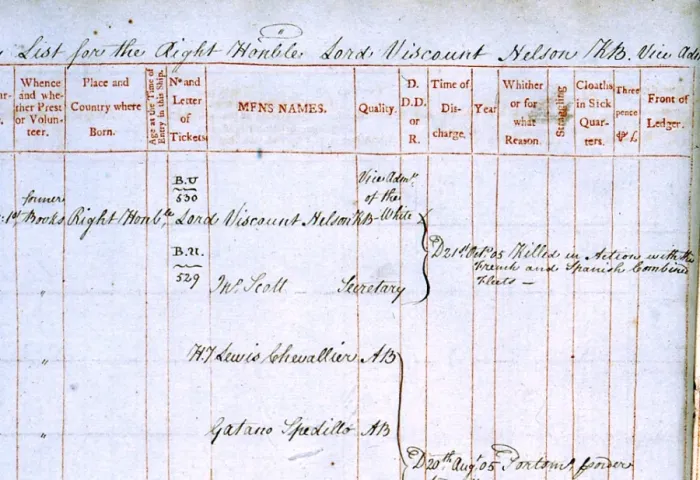 List for the Right Honble Lord Viscount Nelson KB. Vice Adm
Whence and whe-ther Prest or Volun-teer.
Place and Country where Born.
Age at the Time of Entry in this Ship.
Nº and Letter of Tickets
MENS NAMES.
Quality.
D. D.D. or R.
Time of Dis-charge.
Year
Whither or for what Reason.
Straggling
Cloaths in Sick Quar-ters.
Three pence ⅌ £.
Front of Ledger.
B.U 530
Vice Adml. of the White
former Books Right Honble Lord Viscount Nelson KB
B.U. 529
Mr. Scott Secretary
D 21st Octr. 05 Killed in Action with the
French and Spanish Combined
Fleets —
H7 Lewis Chevallier AB
Gatano Spedillo AB
D 20th Augt 05 Portsmo